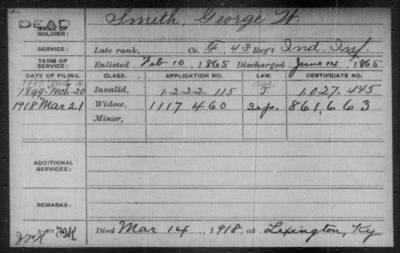 DEAD Smith, George W.
NAME OF SOLDIER:
SERVICE: Late rank, Co. F, 43 Reg't Ind. Inf.
TERM OF SERVICE: Enlisted Feb 10, 1865 Discharged June 14, 1865
DATE OF FILING. CLASS. APPLICATION NO. LAW. CERTIFICATE NO.
1899 Mch 20 Invalid, 1.222.115 1.027.445
1918 Mar 21 Widow, 1117460 861,663
Minor,
ADDITIONAL SERVICES:
REMARKS:
Died Mar 14, 1918, at Lexington, Ky